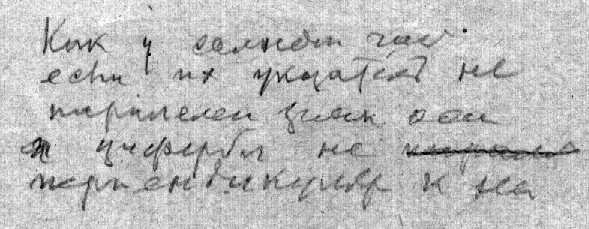 Как у солнечн часов
если их указатель не
параллелен земн оси
и циферблат не
перпендикуляр к ней